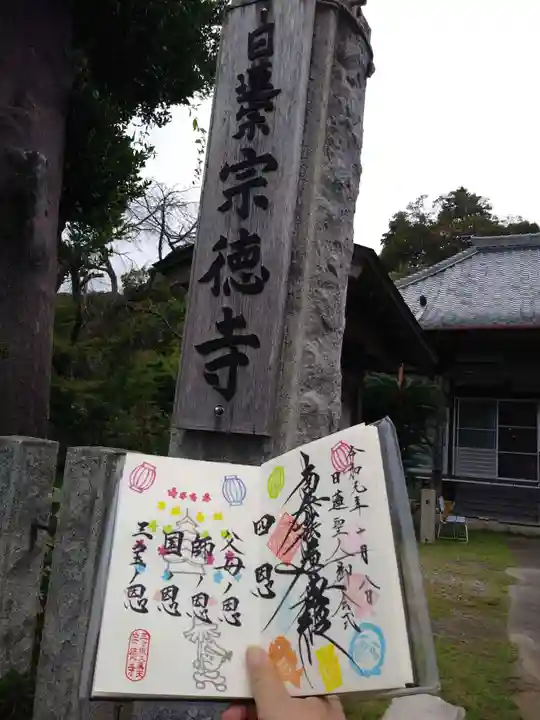 日蓮宗
宗徳寺
令和元年十月八日
日蓮聖人御会式
南無妙法蓮華経
四恩
父母ノ恩
師ノ恩
国ノ恩
三宝ノ恩